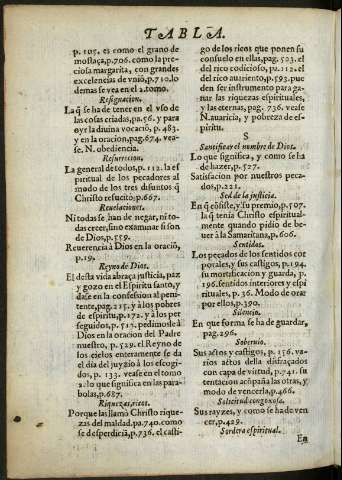 TABLA.
p. 105. es como el grano de
mostaça, p.706. como la pre-
ciosa margarita, con grandes
excelencias de vniõ, p.710. lo
demas se vea en el 2. tomo.
Resignacion.
La q̃ se ha de tener en el vso de
las cosas criadas, pa.56. y para
oyr la diuina vocaciõ, p. 483.
y en la oracion, pag.674. vea-
se. N. obediencia.
Resurreccion.
La general de todos, p. 112. la es
piritual de los pecadores al
modo de los tres disuntos q̃
Christo resucitò, p.667.
Reuelaciones.
Ni todas se han de negar, ni to-
das creer, sino examinar si son
de Dios, p.559.
Reuerencia à Dios en la oraciõ,
p.19.
Reyno de Dios.
El desta vida abraça justicia, paz
y gozo en el Espiritu santo, y
dase en la confession al peni-
tente, pag.215. y à los pobres
de espiritu, p.272. y a los per
seguidos, p.512. pedimosle à
Dios en la oracion del Padre
nuestro, p. 529. el Reyno de
los cielos enteramente se da
el dia del juyzio à los escogi-
dos, p. 133. vease en el tomo
2. lo que significa en las para-
bolas, p.687.
Riquezas, ricos.
Porque las llamò Christo rique-
zas del maldad, pa.740. como
se desperdiciã, p.736. el casti-
go de los ricos que ponen su
consuelo en ellas, pag. 523. el
del rico codicioso, pa.112. el
del rico auariento, p.593. pue
den ser instrumento para ga-
nar las riquezas espirituales,
y las eternas, pag. 736. vease
N. auaricia, y pobreza de es-
piritu.
S
Santificar el nombre de Dios.
Lo que significa, y como se ha
de hazer, p.527.
Satisfacion por nuestros peca-
dos, p.221.
Sed de la justicia.
En q̃ cõsiste, y su premio, p.507.
la q̃ tenia Christo espiritual-
mente quando pidio de be-
uer à la Samaritana, p.606.
Sentidos.
Los pecados de los sentidos cor
porales, y sus castigos, p.194.
su mortificacion y guarda, p.
196. sentidos interiores y espi
rituales, p. 36. Modo de orar
por ellos, p.390.
Silencio.
En que forma se ha de guardar,
pag.296.
Soberuio.
Sus actos y castigos, p. 156. va-
rios actos della disfraçados
con capa de virtud, p.741. su
tentacion acõpaña las otras, y
modo de vencerla, p.466.
Solicitud congoxosa.
Sus rayzes, y como se ha de ven
cer, p.429.
Sordera espiritual.
En